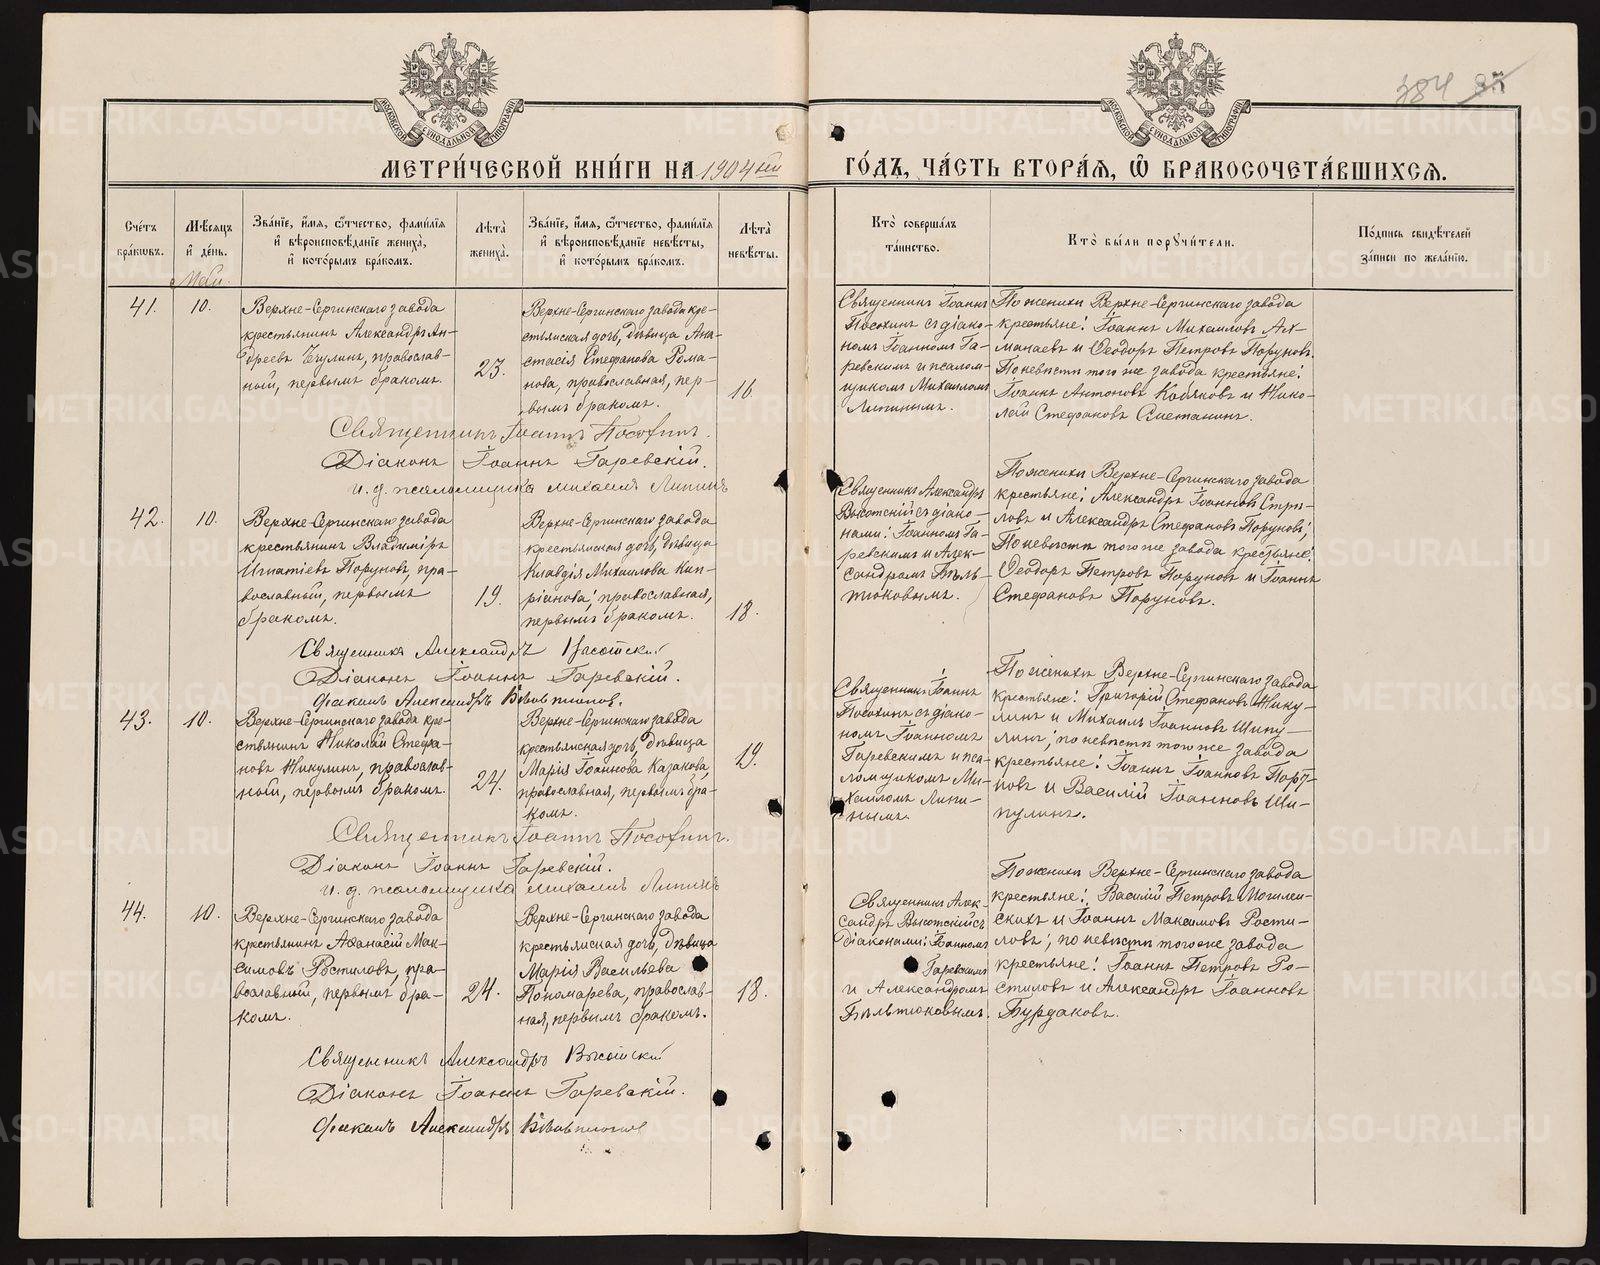 384
МЕТРИ́ЧЕСКОЙ КНИ́ГИ НА 1904 ый ГО́ДЪ, ЧА́СТЬ ВТОРА́Я, Ѡ҆ БРАКОСОЧЕТА́ВШИХСЯ.
Сче́тъ бра́ковъ.
Мѣ́сяцъ и҆ де́нь.
Зва́нїе, и҆́мя, ѻ҆́тчество, фами́лїя и҆ вѣроисповѣ́данїе жениха̀, и҆ кото́рымъ бра́комъ.
Лѣта̀ жениха̀.
Зва́нїе, и҆́мя, ѻ҆́тчество, фами́лїя и҆ вѣроисповѣ́данїе невѣ́сты, и҆ кото́рымъ бра́комъ.
Лѣта̀ невѣ́сты.
Кто̀ соверша́лъ та́инство.
Кто̀ бы́ли поруч́ители.
По́дпись свидѣ́телей за́писи по жела́нїю.
Май.
41.
10.
Верхне-Сергинскаго завода
крестьянинъ Александръ Ан-
дреевъ Чулинъ, православ-
ный, первымъ бракомъ.
23.
Верхне-Сергинскаго завода кре-
стьянская дочь, дѣвица Ана-
стасія Стефанова Рома-
нова, православная, пер-
вымъ бракомъ.
16.
Священникъ Іоаннъ
Посохинъ съ діако-
номъ Іоанномъ Га-
ревскимъ и псалом-
щикомъ Михаиломъ
Липинымъ.
По женихѣ Верхне-Сергинскаго завода
крестьяне: Іоаннъ Михаиловъ Ах-
манаевъ и Ѳеодоръ Петровъ Порунов.
По невѣстѣ того же завода крестьяне:
Іоаннъ Антоновъ Кобяковъ и Нико-
лай Стефановъ Сметанинъ.
Священникъ Іоаннъ Посохинъ.
Діаконъ Іоаннъ Гаревскій.
и. д. псаломщика Михаилъ Липинъ
42.
10.
Верхне-Сергинскаго завода
крестьянинъ Владиміръ
Игнатіевъ Порунов, пра-
вославный, первымъ
бракомъ.
19.
Верхне-Сергинскаго завода
крестьянская дочь, дѣвица
Клавдія Михаилова Кип-
ріанова, православная,
первымъ бракомъ.
18.
Священникъ Александръ
Высотскій съ діако-
нами: Іоанномъ Га-
ревскимъ и Алек-
сандромъ Бѣль-
тюковымъ.
По женихѣ Верхне-Сергинскаго завода
крестьяне: Александръ Іоанновъ Стри-
ловъ и Александръ Стефановъ Порунов;
По невѣстѣ того же завода крестьяне:
Ѳеодоръ Петровъ Порунов и Іоаннъ
Стефановъ Порунов.
Священникъ Александръ Высотскій
Діаконъ Іоаннъ Гаревскій.
Діаконъ Александръ Бѣльтюковъ.
43.
10.
Верхне-Сергинскаго завода кре-
стьянинъ Николай Стефа-
новъ Никулинъ, православ-
ный, первымъ бракомъ.
24.
Верхне-Сергинскаго завода
крестьянская дочь, дѣвица
Марія Іоаннова Казакова,
православная, первымъ бра-
комъ.
19.
Священникъ Іоаннъ
Посохинъ съ діако-
номъ Іоанномъ
Гаревскимъ и пса-
ломщикомъ Ми-
хаиломъ Липи-
нымъ.
По женихѣ Верхне-Сергинскаго завода
крестьяне: Григорій Стефановъ Нику-
линъ и Михаилъ Іоанновъ Шипу-
линъ; по невѣстѣ того же завода
крестьяне: Іоаннъ Іоанновъ Пору-
новъ и Василій Іоанновъ Ши-
пулинъ.
Священникъ Іоаннъ Посохинъ.
Діаконъ Іоаннъ Гаревскій.
и. д. псаломщика Михаилъ Липинъ
44.
10.
Верхне-Сергинскаго завода
крестьянинъ Аѳанасій Мак-
симовъ Ростиловъ, пра-
вославный, первымъ бра-
комъ.
24.
Верхне-Сергинскаго завода
крестьянская дочь, дѣвица
Марія Васильева
Пономарева, православ-
ная, первымъ бракомъ.
18.
Священникъ Алек-
сандръ Высотскій съ
діаконами: Іоанномъ
Гаревскимъ
и Александромъ
Бѣльтюковымъ.
По женихѣ Верхне-Сергинскаго завода
крестьяне: Василій Петровъ Могилен-
скихъ и Іоаннъ Максимовъ Рости-
ловъ; по невѣстѣ того же завода
крестьяне: Іоаннъ Петровъ Ро-
стиловъ и Александръ Іоанновъ
Бурдаковъ.
Священникъ Александръ Высотскій
Діаконъ Іоаннъ Гаревскій.
Діаконъ Александръ Бѣльтюковъ
METRIKI.GASO-URAL.RU